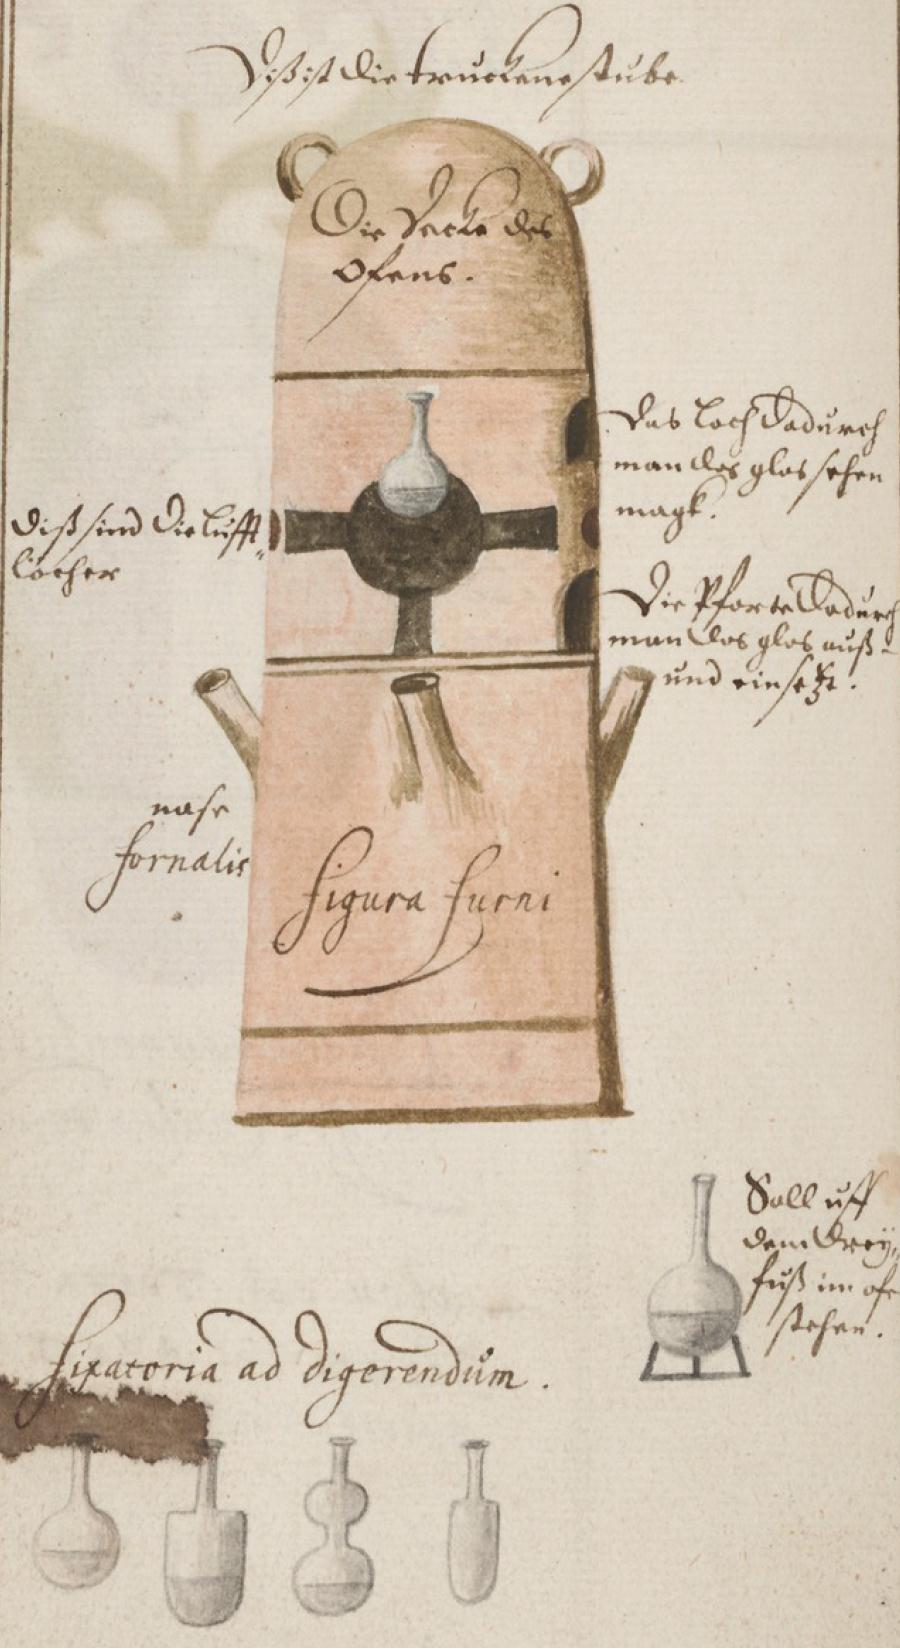 Diß ist die truckene stube.
Die Decke des
Ofens.
Das loch dadurch
man das glas sehen
magk.
diß sind die lufft-
löcher
Die Pforte dadurch
man das glas auß-
und einsetzt.
nase
fornalis
figura furni
Soll uff
dem drey,
fuß im ofe
stehen.
fixatoria ad digerendum.